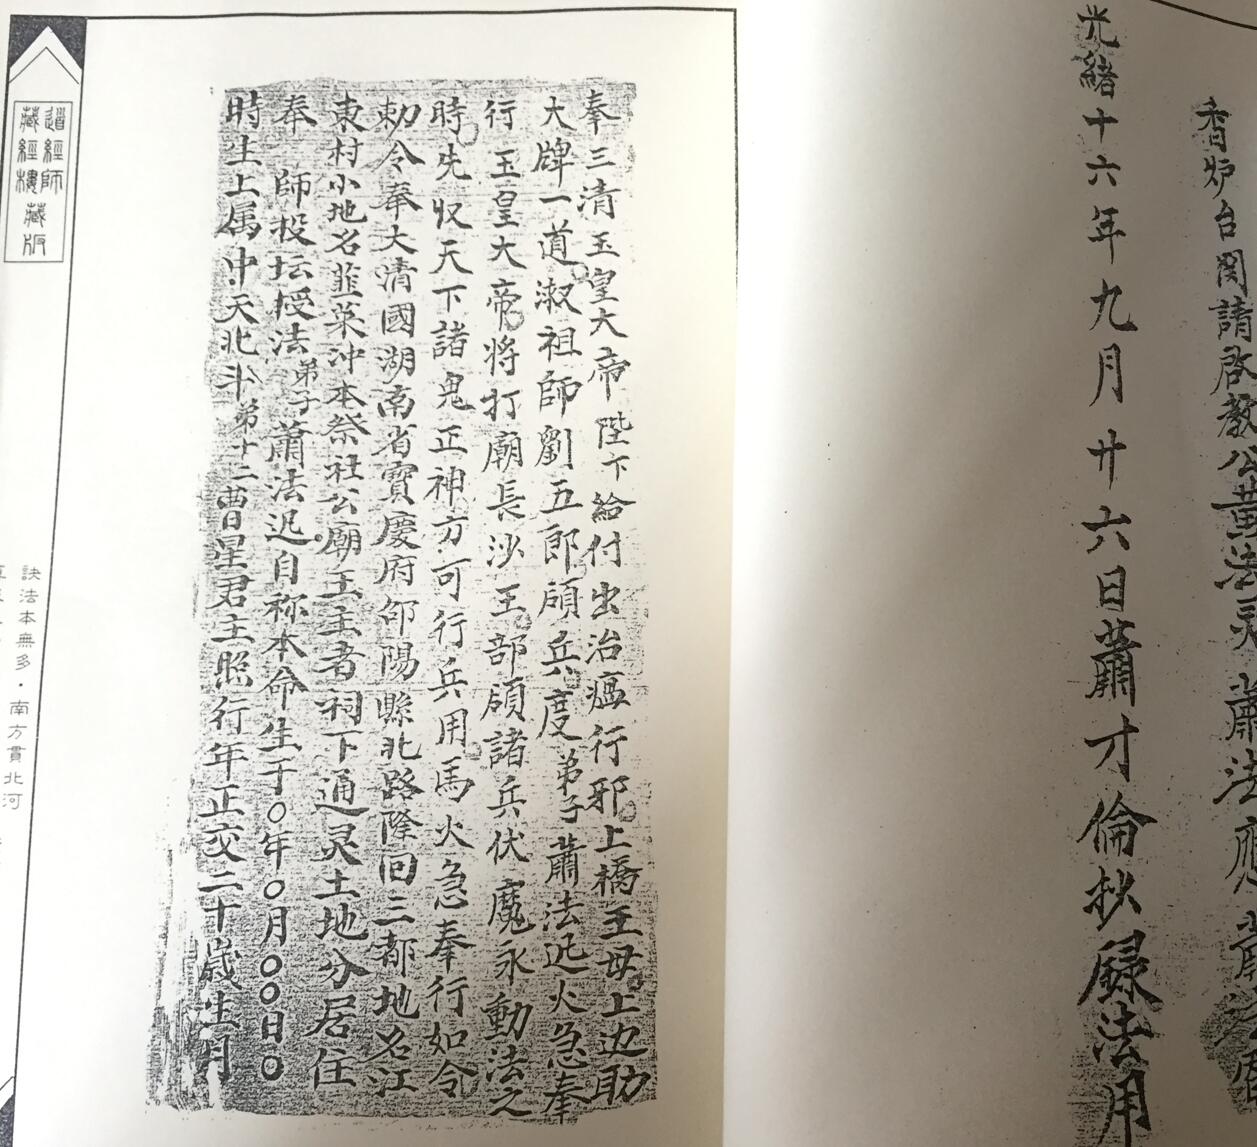 香炉台関請啓教公黃法灵 蕭法應
光緒十六年九月廿六日蕭才倫抄録法用
奉三清玉皇大帝陛下給付出治瘟行邪上橋王母上边助
大牌一道淑祖師劉五郎頎兵度弟子蕭法迟火急奉
行玉皇大帝将打廟長沙王部頎諸兵伏魔永動法之
時先収天下諸鬼正神方可行兵用馬火急奉行如令
勅令奉大清國湖南省寳慶府邵陽縣北路隆回三都地名江
東村小地名韮菜冲本祭社公廟王主者祠下通灵土地分居住
奉 師投坛授法弟子蕭法迟自称本命生于〇年〇月〇〇日〇
時生上属中天北斗弟十二曹星君主照行年正交二十歲生月
道經師
藏經樓藏版
訣法本無多·南方貫北河